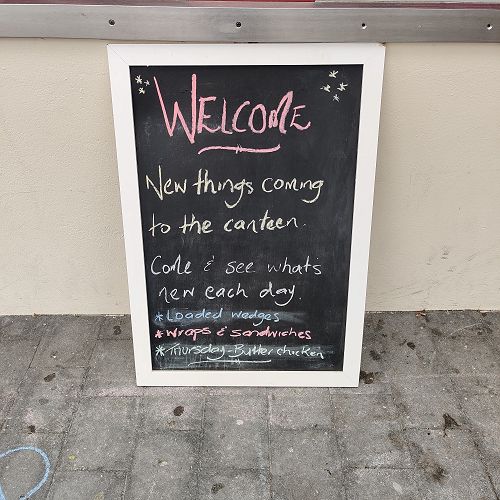 WELCOME
New things coming
to the canteen.
Come & see what's
new each day.
*Loaded wedges
*Wraps & Sandwiches
*Thursday-Butter chicken